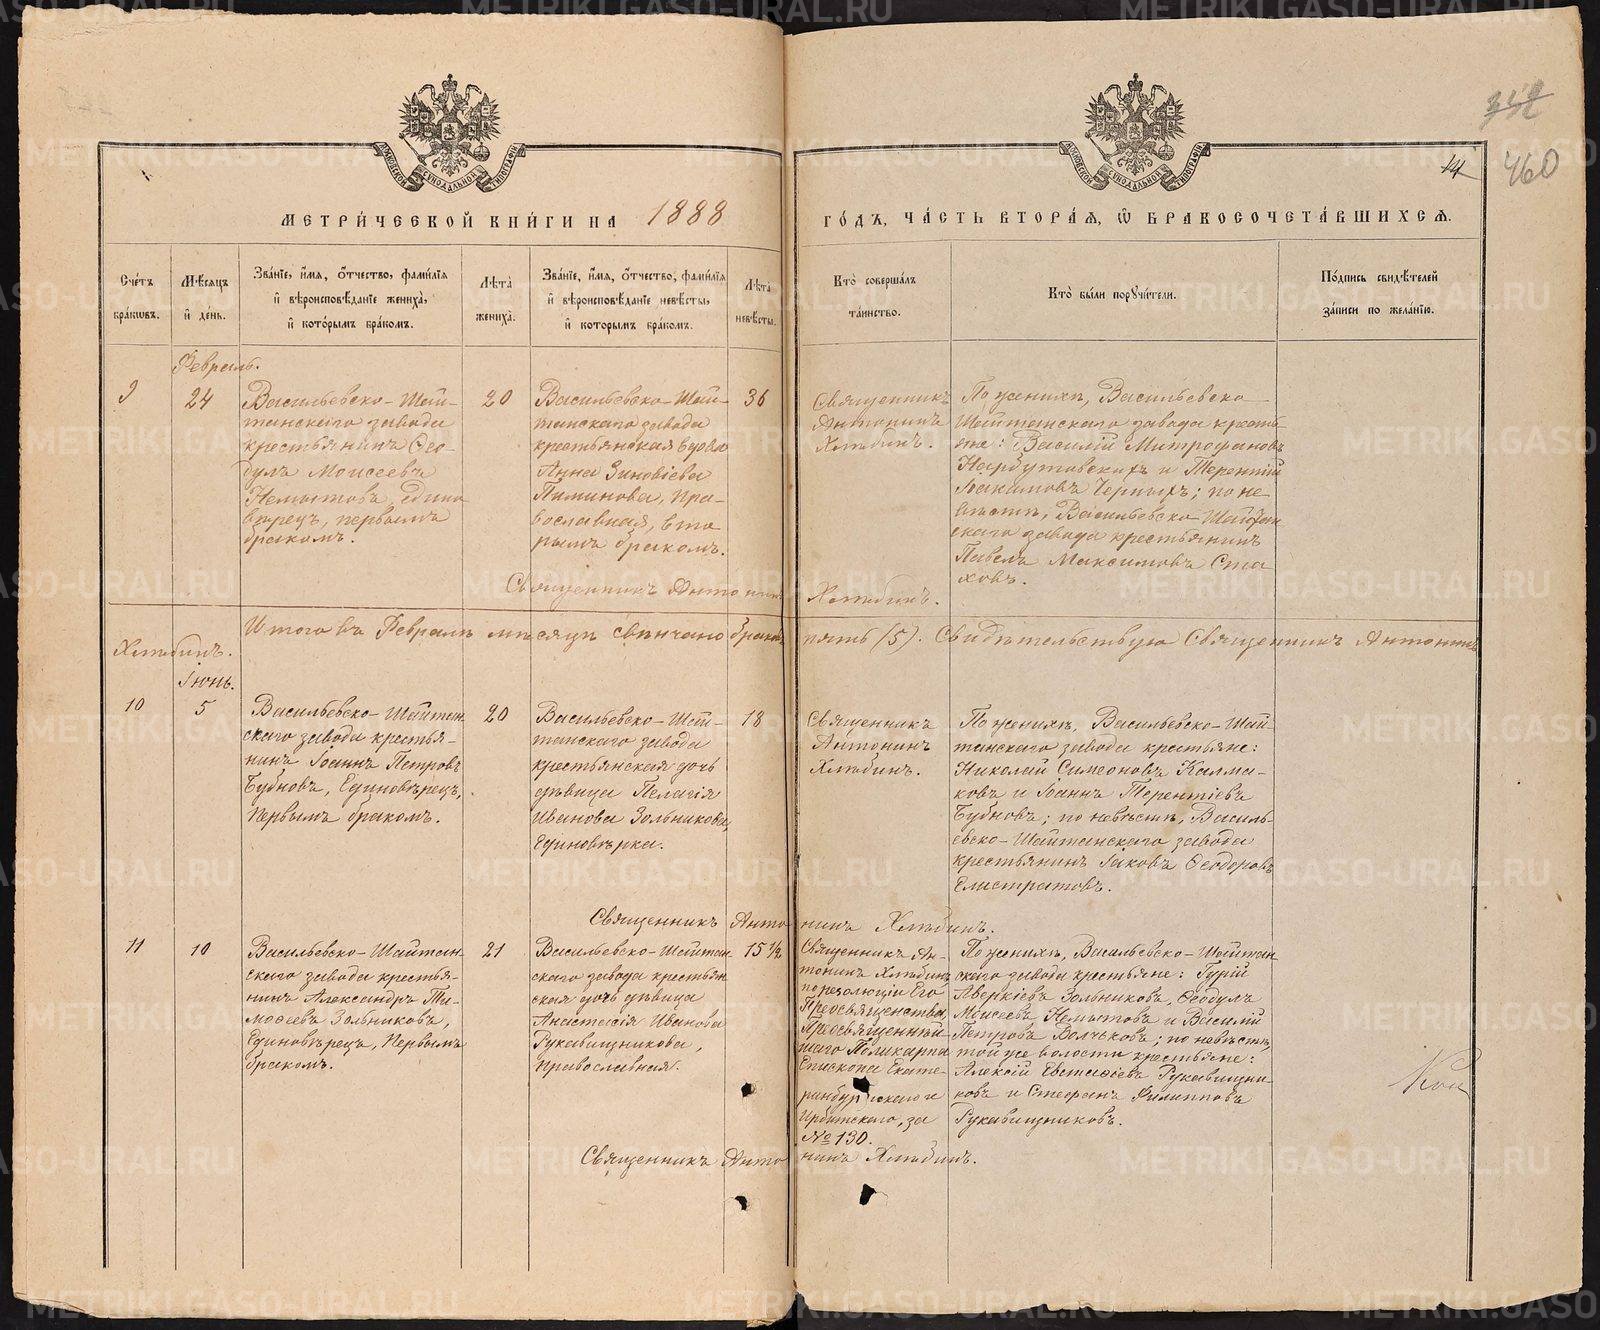 МЕТРИ́ЧЕСКОЙ КНИ́ГИ НА 1888
ГО́ДЪ, ЧА́СТЬ ВТОРА́Я, Ѽ БРАКОСОЧЕТА́ВШИХСЯ.
14
352
460
МОСКОВСКОЙ СѴНОДАЛЬНОЙ ТИПОГРАФІИ
МОСКОВСКОЙ СѴНОДАЛЬНОЙ ТИПОГРАФІИ
Сче́тъ бра́ковъ.
Мѣ́сяцъ и҆ де́нь.
Зва́нїе, и҆́мя, ѻ҆́тчество, фами́лїя и҆ вѣроисповѣ́данїе жениха̀, и҆ кото́рымъ бра́комъ.
Лѣ́та жениха̀.
Зва́нїе, и҆́мя, ѻ҆́тчество, фами́лїя и҆ вѣроисповѣ́данїе невѣ́сты, и҆ кото́рымъ бра́комъ.
Лѣ́та невѣ́сты.
Кто̀ соверша́лъ та́инство.
Кто̀ бы́ли порꙋчи́тели.
По́дпись свидѣ́телей за́писи по жела́нїю.
Февраль.
9
24
Васильевско-Шай-
танскаго завода
крестьянинъ Ѳео-
дулъ Моисеевъ
Немытовъ, едино
вѣрецъ, первымъ
бракомъ.
20
Васильевско-Шай-
танскаго завода
крестьянская вдова
Анна Зиновіева
Пиминова, пра-
вославная, вто
рымъ бракомъ.
36
Священникъ
Антонинъ
Хлѣбинъ.
По женихѣ, Васильевско
Шайтанскаго завода кресть-
яне: Василій Митрофановъ
Нарбутовскихъ и Терентій
Іоакимовъ Черныхъ; по не-
вѣстѣ, Васильевско-Шайтан
скаго завода крестьянинъ
Павелъ Максимовъ Ста
ховъ.
Священникъ Антонинъ Хлѣбинъ.
Итого въ Февралѣ мѣсяцѣ свѣнчано браковъ пять (5). Свидѣтельствую Священникъ Антонинъ
Хлѣбинъ.
Іюнь.
10
5
Васильевско-Шайтан
скаго завода крестья-
нинъ Іоаннъ Петровъ
Бубновъ, Единовѣрецъ,
Первымъ бракомъ.
20
Васильевско-Шай-
танскаго завода
крестьянская дочь
дѣвица Пелагія
Иванова Зольникова,
Единовѣрка.
18
Священникъ
Антонинъ
Хлѣбинъ.
По женихѣ, Васильевско-Шай-
танскаго завода крестьяне:
Николай Симеоновъ Калма-
ковъ и Іоаннъ Терентіевъ
Бубновъ; по невѣстѣ, Василь-
евско-Шайтанскаго завода
крестьянинъ Іаковъ Ѳеодоровъ
Елистратовъ.
Священникъ Антонинъ Хлѣбинъ.
11
10
Васильевско-Шайтан-
скаго завода крестья-
нинъ Александръ Ти-
моѳеевъ Зольниковъ,
Единовѣрецъ, Первымъ
бракомъ.
21
Васильевско-Шайтан-
скаго завода крестьян
ская дочь дѣвица
Анастасія Иванова
Рукавишникова,
православная.
15 1/2
Священникъ Ан-
тонинъ Хлѣбинъ
по резолюціи Его
Преосвященства,
Преосвященнѣй
шаго Поликарпа
Епископа Екате-
ринбургскаго и
Ирбитскаго, за
№ 130.
По женихѣ, Васильевско-Шайтан
скаго завода крестьяне: Гурій
Аверкіевъ Зольниковъ, Ѳеодулъ
Моисеевъ Немытовъ и Василій
Петровъ Волковъ; по невѣстѣ,
той же волости крестьяне:
Алексій Евстаѳіевъ Рукавишни-
ковъ и Стефанъ Филипповъ
Рукавишниковъ.
Священникъ Антонинъ Хлѣбинъ.
METRIKI.GASO-URAL.RU